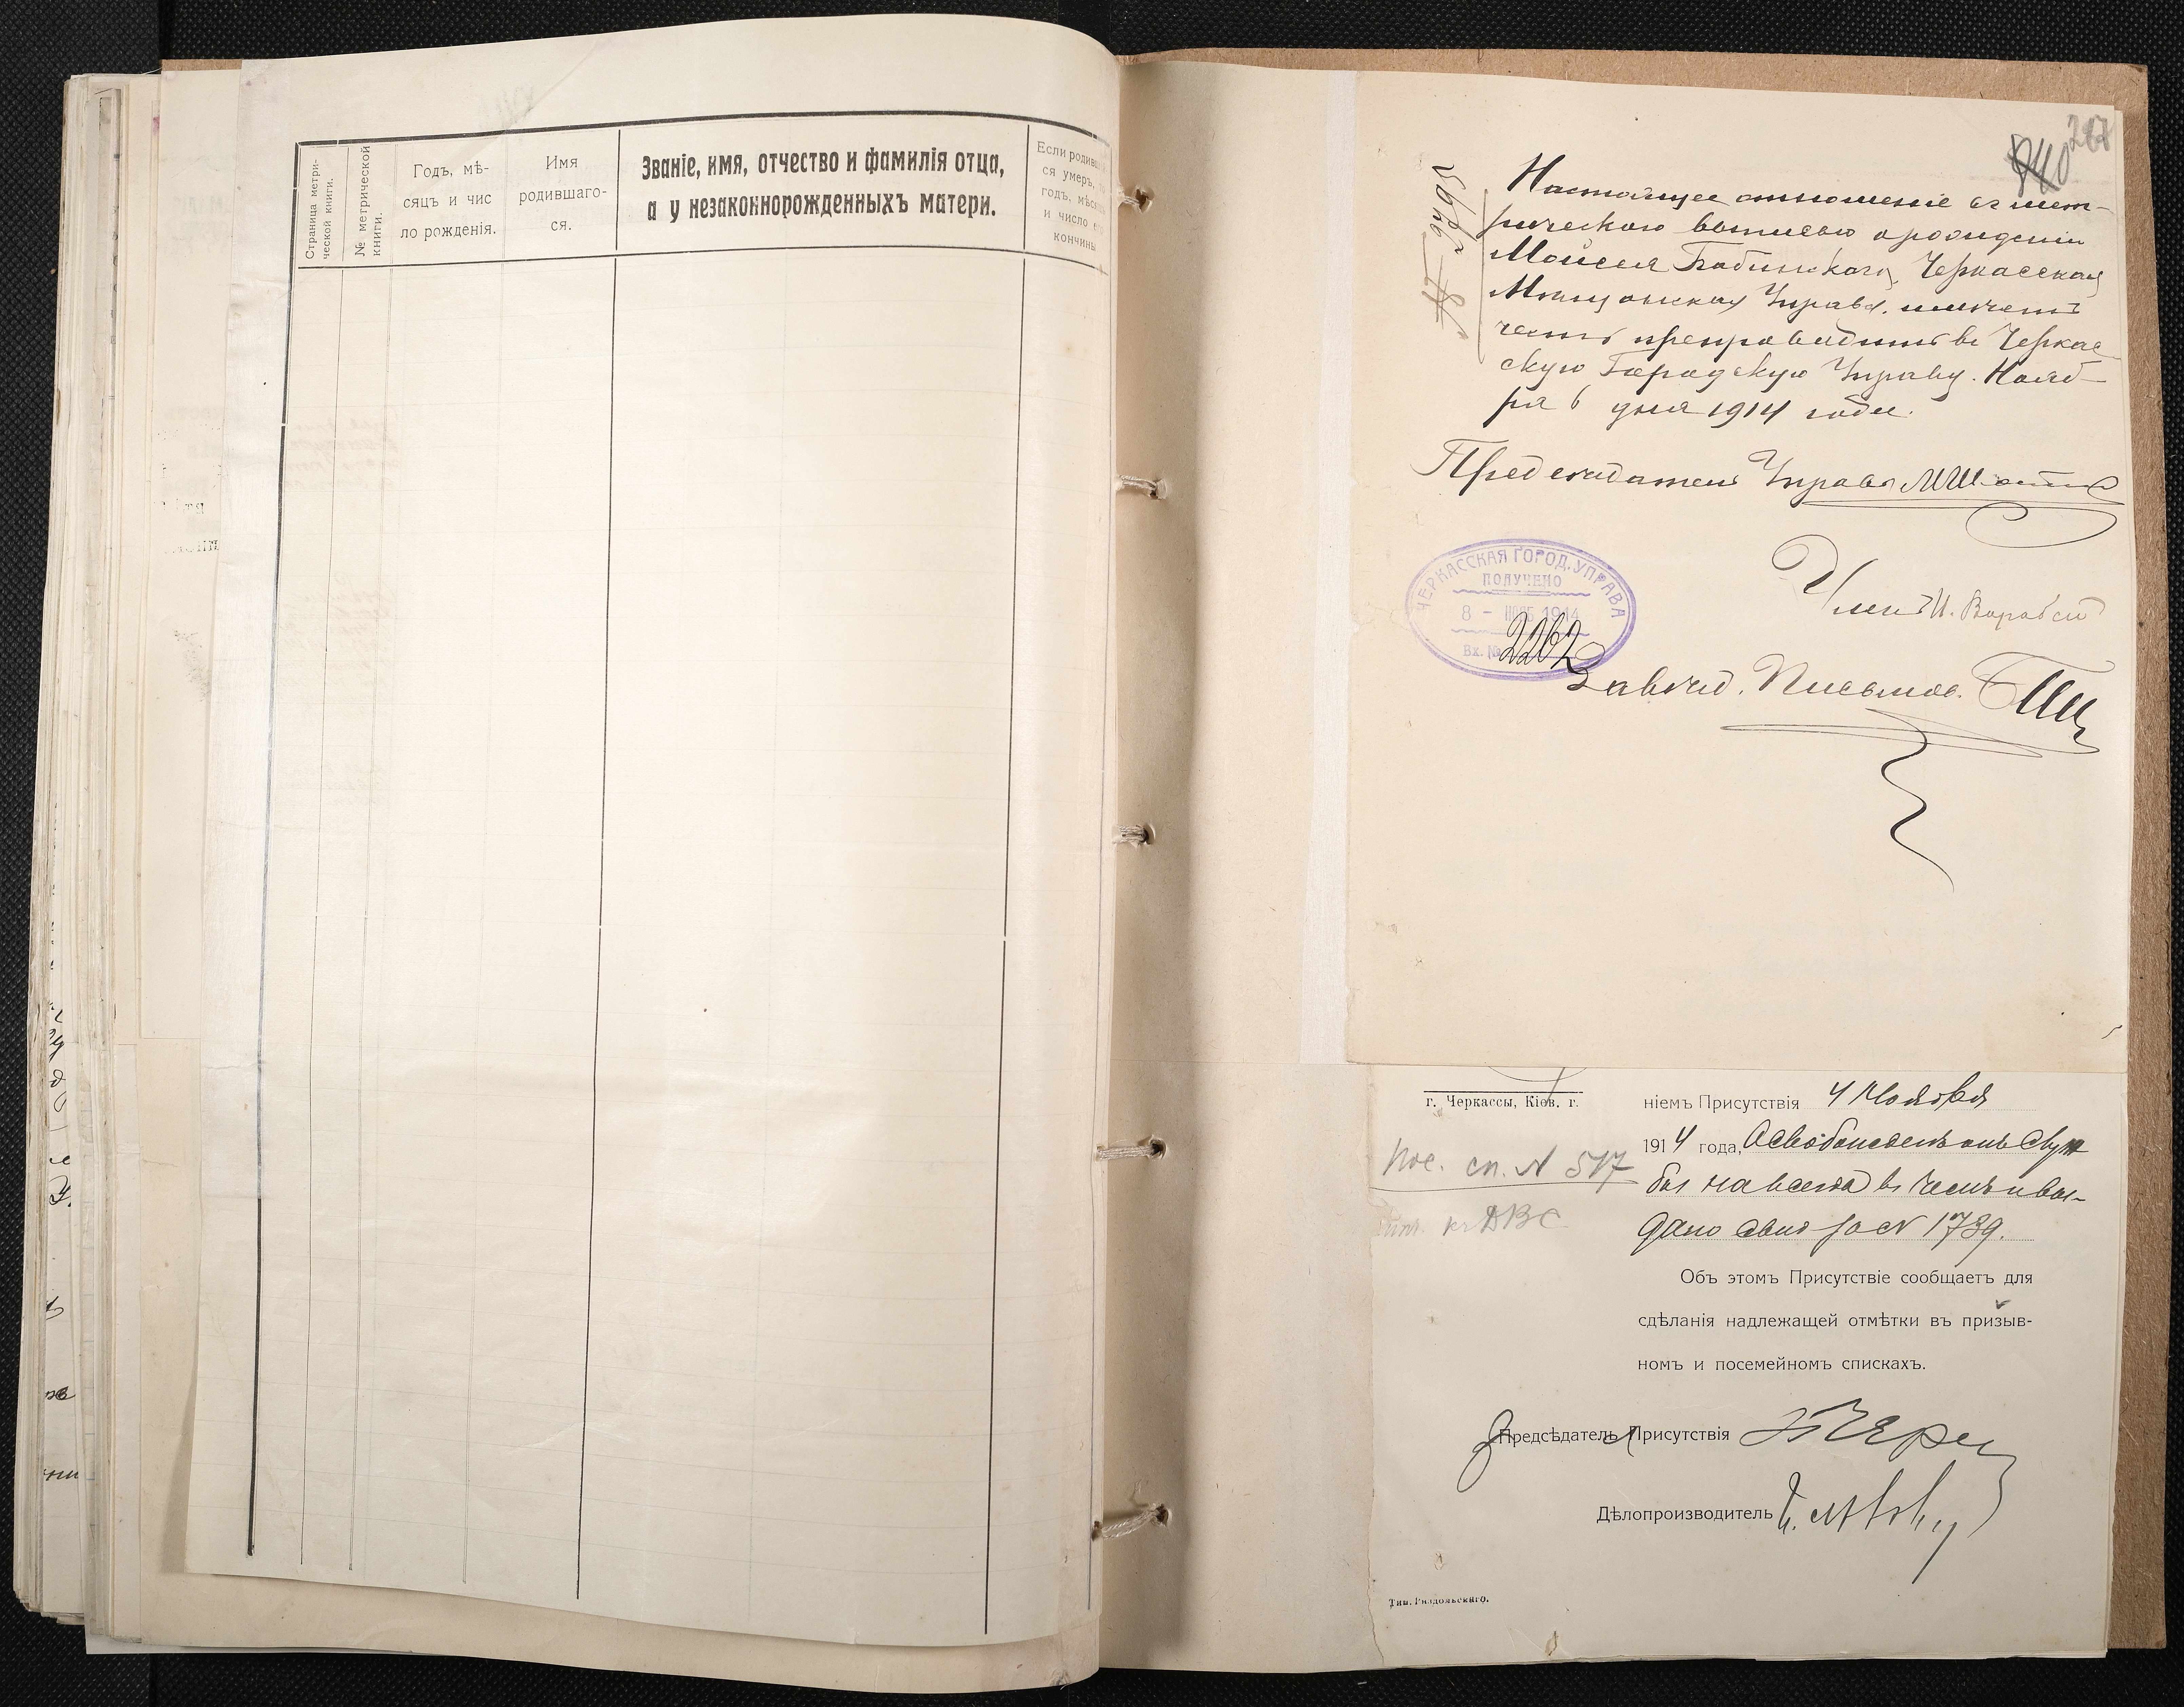 Страница метри-
ческой книги.
№ метрической
книги.
Годъ, мѣ-
сяцъ и чис
ло рожденія.
Имя
родившаго-
ся.
Званіе, имя, отчество и фамилія отца,
а у незаконнорожденныхъ матери.
Если родивш
ся умеръ,
годъ, мѣся
и число е
кончины
287
Настоящее отношеніе съ мет-
рическою выписью о рожденіи
Мойсея Бабинскаго, Черкасская
Мѣщанская Управа, имѣетъ
честь препроводить въ Черкас-
скую Городскую Управу. Нояб-
ря 6 дня 1914 года.
Предсѣдатель Управы
ЧЕРКАССКАЯ ГОРОД. УПРАВА
ПОЛУЧЕНО
8 - НОЯБ 1914
Вх. № 2262
Членъ
Завѣд. Письмов.
г. Черкассы, Кіев. г.
Пос. сп. № 517
ніемъ Присутствія 4 Ноября
1914 года, Освобожденъ отъ служ
бы навсегда въ чемъ и вы-
дано свид за № 1739.
Объ этомъ Присутствіе сообщаетъ для
сдѣланія надлежащей отмѣтки въ призыв-
номъ и посемейномъ спискахъ.
Предсѣдатель Присутствія
Дѣлопроизводитель
Тип. Раздольскаго.